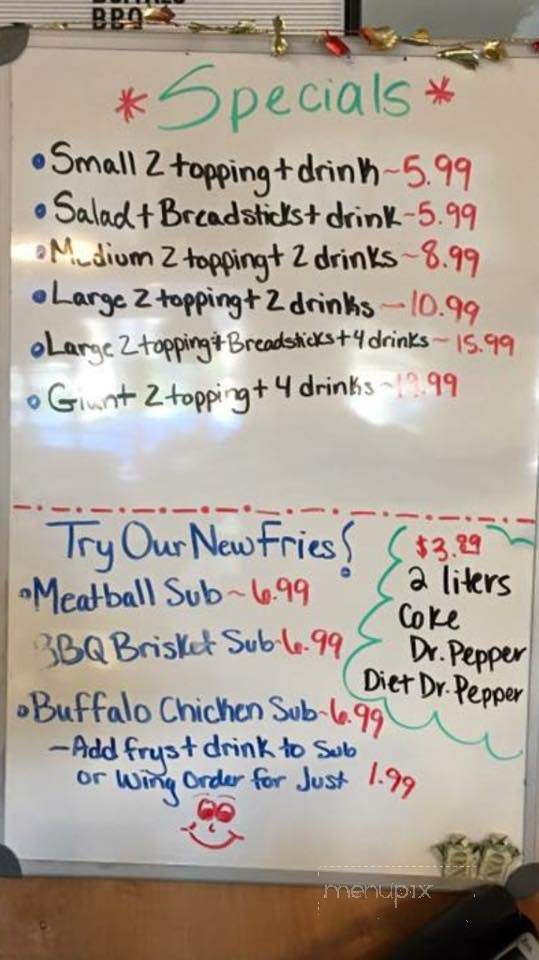 BBQ
*Specials*
• Small 2 topping + drink ~ 5.99
• Salad + Breadsticks + drink - 5.99
• Medium 2 topping + 2 drinks ~ 8.99
• Large 2 topping + 2 drinks - 10.99
• Large 2 topping + Breadsticks + 4 drinks ~ 15.99
• Giant 2 topping + 4 drinks ~
Try Our New Fries!
• Meatball Sub ~ 6.99
BBQ Brisket Sub - 6.99
• Buffalo Chicken Sub - 6.99
- Add frys + drink to Sub
or Wing Order for Just 1.99
$3.29
2 liters
Coke
Dr. Pepper
Diet Dr. Pepper
menupix